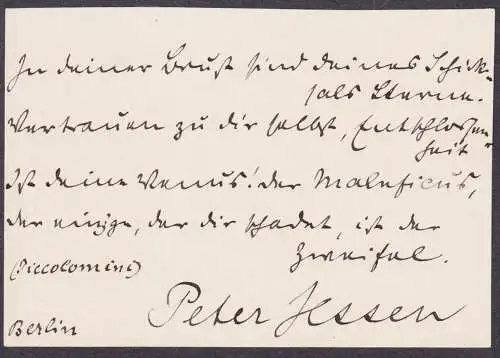 In deiner Brust sind deines Schick-
sals Sterne.
Vertrauen zu dir selbst, Entschlossen-
heit
Ist deine Venus! der Maleficus,
der einzige, der dir schadet, ist der
Zweifel.
(Piccolomini)
Peter Jessen
Berlin